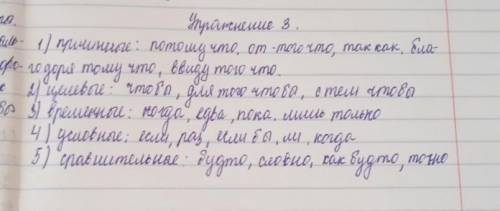 Упражнение 3.
1) причинные: потому что, от-того что, так как, бла-
годоря тому что, ввиду того что.
2) целевые: чтобы, для того чтобы, с тем чтобы
3) временные: когда, едва, пока, лишь только
4) условные: если, раз, если бы, ли, когда
5) сравнительные: будто, словно, как будто, точно